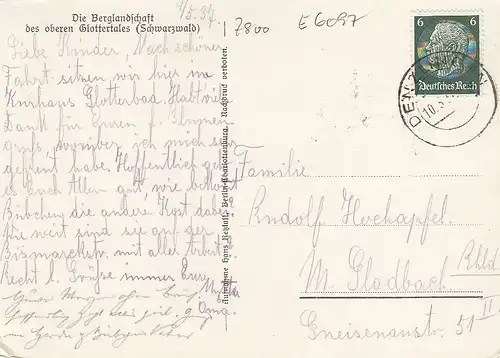 Die Berglandschaft
des oberen Glottertales (Schwarzwald)
1/5.37.
7800
E 6097
Liebe Kinder, Nach schöner
Fahrt sitzen wir hier im
Kurhaus Glotterbad. Habt vielen
Dank für Euren l. Blumen
gruss, worüber ich mich sehr
gefreut habe. Hoffentlich geht
es Euch Allen gut, wie bekommt
Bübchen die andere Kost, dabei?
Wie weit sind sie auf der
Bismarckstr. mit aller Arbeit?
Recht l. Grüsse immer Eure
Mutter
Oma.
Aufnahme Hans Retzlaff, Berlin-Charlottenburg. Nachdruck verboten.
6 6
Deutsches Reich
Familie
Rudolf Hochapfel
M. Gladbach
Rhld
Gneisenaustr. 51 II